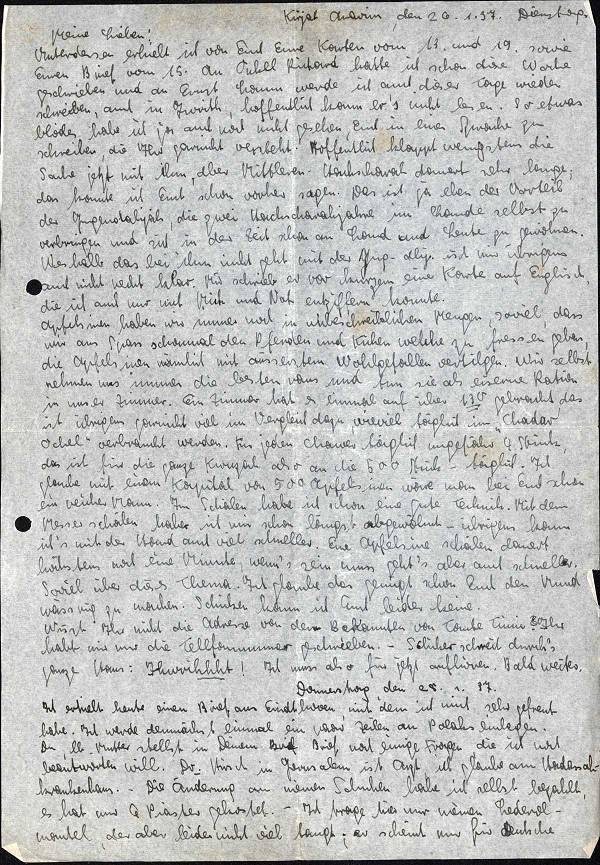 Kirjat Anavim, den 26.1.37. Dienstag.
Meine Lieben!
Unterdessen erhielt ich von Euch Eure Karten vom 13. und 19. sowie
Euren Brief vom 15. An Onkel Richard hatte ich schon diese Woche
geschrieben und an Ernst Hamm werde ich auch dieser Tage wieder
schreiben, auch in Iwrith, hoffentlich kann er's nicht lesen. So etwas
blödes habe ich ja auch noch nicht gesehen, Euch in einer Sprache zu
schreiben, die Ihr garnicht versteht. Hoffentlich klappt wenigstens die
Sache jetzt mit ihm, aber Mittleren-Hachscharah dauert sehr lange;
das konnte ich Euch schon vorher sagen. Das ist ja eben der Vorteil
der Jugendalijah, die zwei Hachscharahjahre im Lande selbst zu
verbringen und sich in der Zeit schon an Land und Leute zu gewöhnen.
Weshalb das bei ihm nicht geht mit der Jug-alij. ist mir übrigens
auch nicht recht klar. Mir schrieb er vor kurzem eine Karte auf Englisch
die ich auch nur mit Müh und Not entziffern konnte.
Apfelsinen haben wir immer noch in unbeschreiblichen Mengen, soviel, dass
wir aus Spass schonmal den Pferden und Kühen welche zu fressen geben,
die Apfelsinen nämlich mit äusserstem Wohlgefallen vertilgen. Wir selbst
nehmen uns immer die besten raus und tun sie als eiserne Ration
in unser Zimmer. Ein Zimmer hat es einmal auf über 130 gebracht das
ist übrigens garnicht viel im Vergleich dazu wieviel täglich im "Chadar
Ochel" verbraucht werden. Für jeden Chawer täglich ungefähr 4 Stück,
das ist für die ganze Kwuzah also an die 500 Stück - täglich. Ich
glaube mit einem Kapital von 500 Apfelsinen wäre man bei Euch schon
ein reicher Mann. Im Schälen habe ich schon eine gute Technik. Mit dem
Messer schälen habe ich mir schon längst abgewöhnt - übrigens kann
ich's mit der Hand auch viel schneller. Eine Apfelsine schälen dauert
höchstens noch eine Minute, wenn's sein muss geht's aber auch schneller.
Soviel über dieses Thema. Ich glaube das genügt schon Euch den Mund
wässrig zu machen. Schicken kann ich Euch leider keine.
Wisst Ihr nicht die Adresse von dem Bekannten von Tante Ihr
habt mir nur die Telefonnummer geschrieben. - schreit durch's
ganze Haus: ! Ich muss also für jetzt aufhören. Bald weiter.
Donnerstag den 28.1.37.
Ich erhielt heute einen Brief aus Eindhoven, mit dem ich mich sehr gefreut
habe. Ich werde demnächst einmal ein paar Zeilen an einlegen.
Du lb. Mutter stellst in Deinem Brief noch einige Fragen die ich noch
beantworten will. Dr. Hirsch in Jerusalem ist Arzt, ich glaube am Hadassah-
krankenhaus. - Die Änderung an meinen Schuhen habe ich selbst bezahlt,
es hat nur 4 Piaster gekostet. - Ich trage hier nur meinen Lederol-
mantel, der aber leider nicht viel taugt; er scheint nur für deutsche